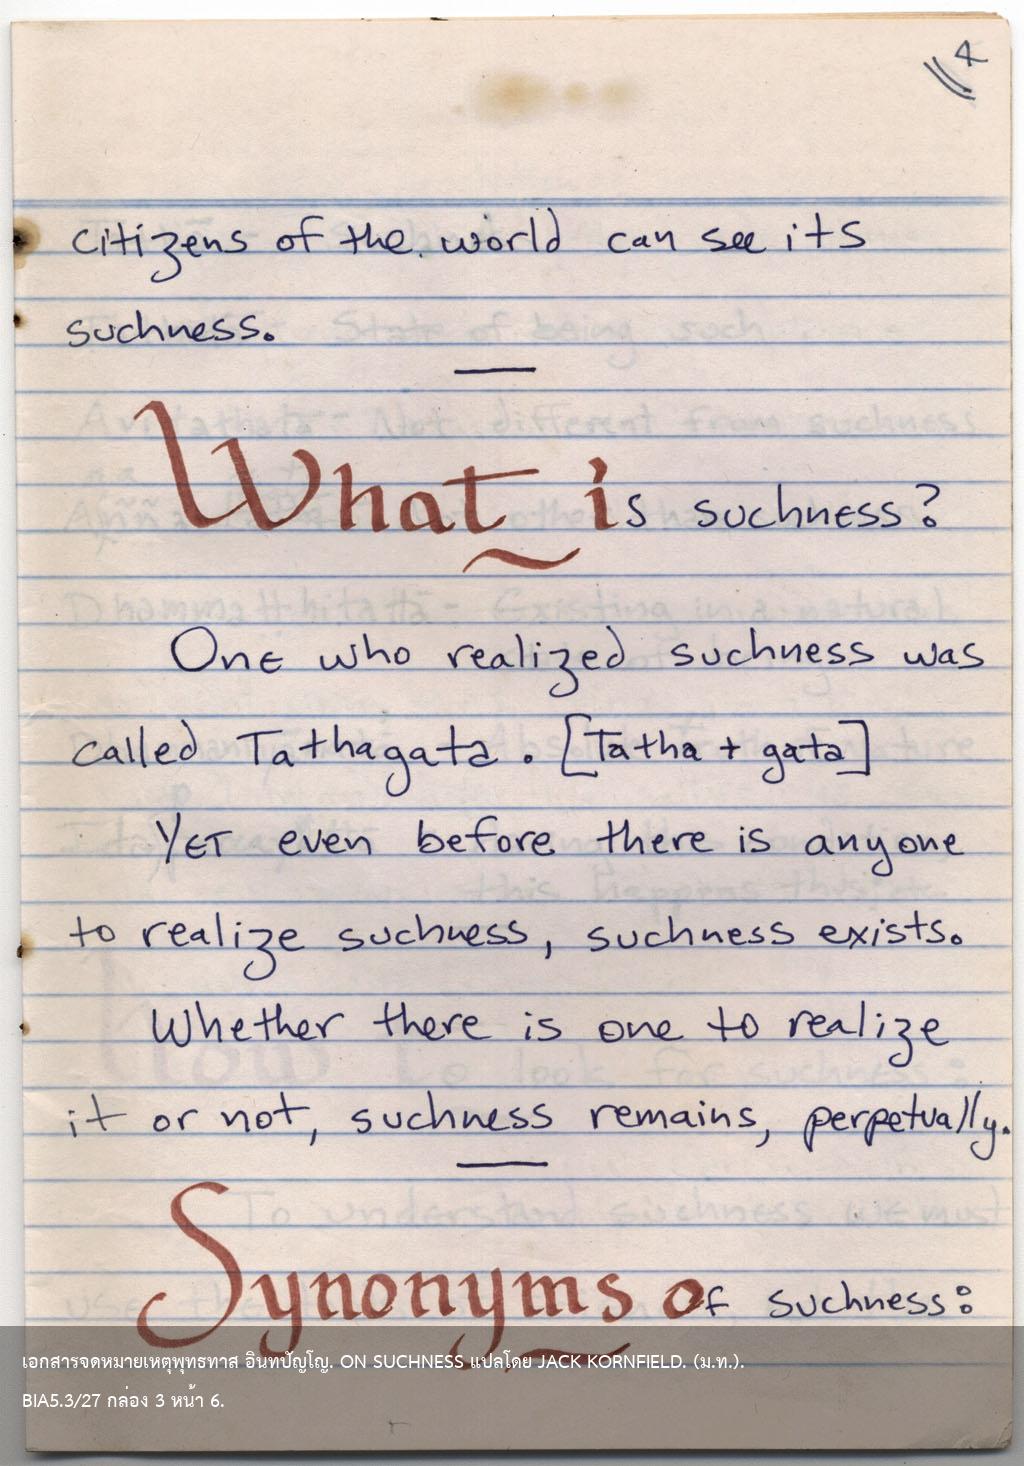 4
citizens of the world can see its
suchness.
What is suchness?
One who realized suchness was
called Tathagata. [Tatha + gata]
Yet even before there is anyone
to realize suchness, suchness exists.
Whether there is one to realize
it or not, suchness remains, perpetually.
Synonyms of suchness:
เอกสารจดหมายเหตุพุทธทาส อินทปัญโญ. ON SUCHNESS แปลโดย JACK KORNFIELD. (ม.ท.).
BIA5.3/27 กล่อง 3 หน้า 6.